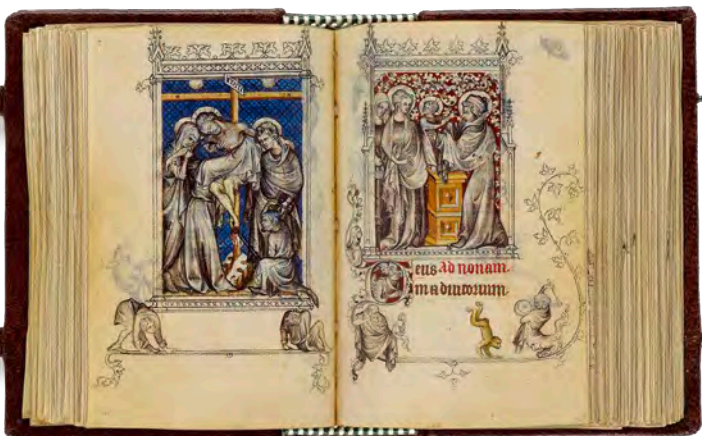 Deus Ad nonam.
in adiutorium.